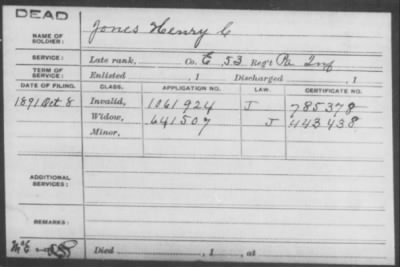 DEAD
NAME OF SOLDIER: Jones Henry C
SERVICE: Late rank, Co. E, 53 Reg't Pa Inf
TERM OF SERVICE: Enlisted , 1 Discharged , 1
DATE OF FILING. CLASS. APPLICATION NO. LAW. CERTIFICATE NO.
1891 Oct 8 Invalid, 1061924 J 785378
Widow, 641507 J 443438
Minor,
ADDITIONAL SERVICES:
REMARKS:
Died , 1 , at